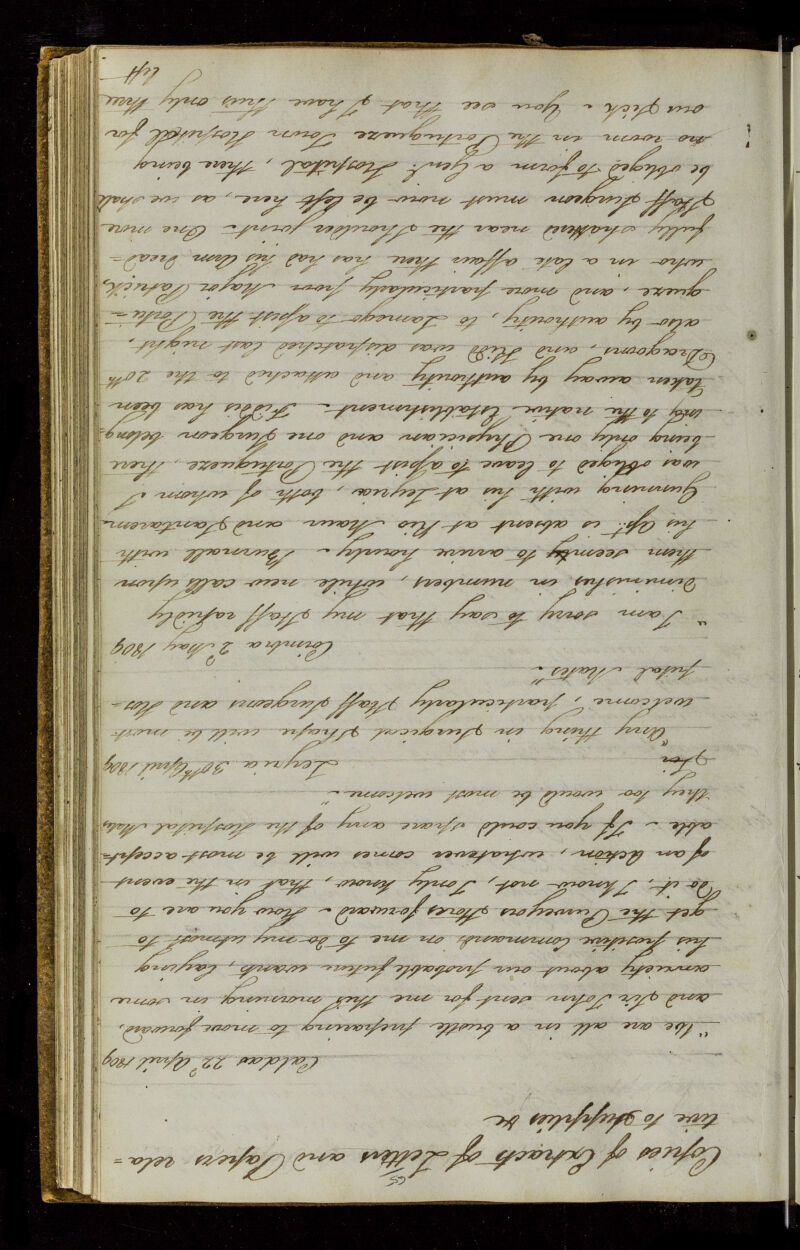 65
Copies of Extracts of Letters and Papers rela=
tive to supplies &c
Caldas 22d April 1809
"We are all in a bustle preparing to move forward,
and Sir John sent for me this morning in some
anxiety about our probable future wants, laying
his positive Commands on me to do my utmost to
get the Purveyors Stores forward. How you are to
do it, I know not, I only know, that in the event
of an Action, whatever comes will be most accept=
able. If you could spare any of the Hospital Mates
they too would be most welcome."
Leyria 30th April 1809
"Any thing in Surgical Shape will be most
welcome, particularly Staff Surgeons and Hos=
pital Mates."
Coimbra 2d May 1809
"I am sorry to say that my Staff rapidly
diminishes in numbers, while new calls upon
them seem to arrive hourly. Burnall with
his Asst. is absent at Rio Maior and Santarem
Gunning with his at Leyria, both of whom I
was obliged to leave to assist the Portugueze, there
being only one Physician and one Surgeon belong=
ing to the native Establishment. Fiddes has been
taken away by authority and attached to the 20th
Dragoons, and Kidd was dispatched last night,
also by authority, to Lamego to assist the Portu=
gueze, and more particularly poor Major Patrick,
who in a late affair there has had his Arm dread=
fully shattered near the shoulder joint. One more
Staff Surgeon must now be left here, as we shall
be obliged to form a Genl. Hospital, there being
no room in the Portugueze Town Hospital for
our sick. You see that I have thus only three
left